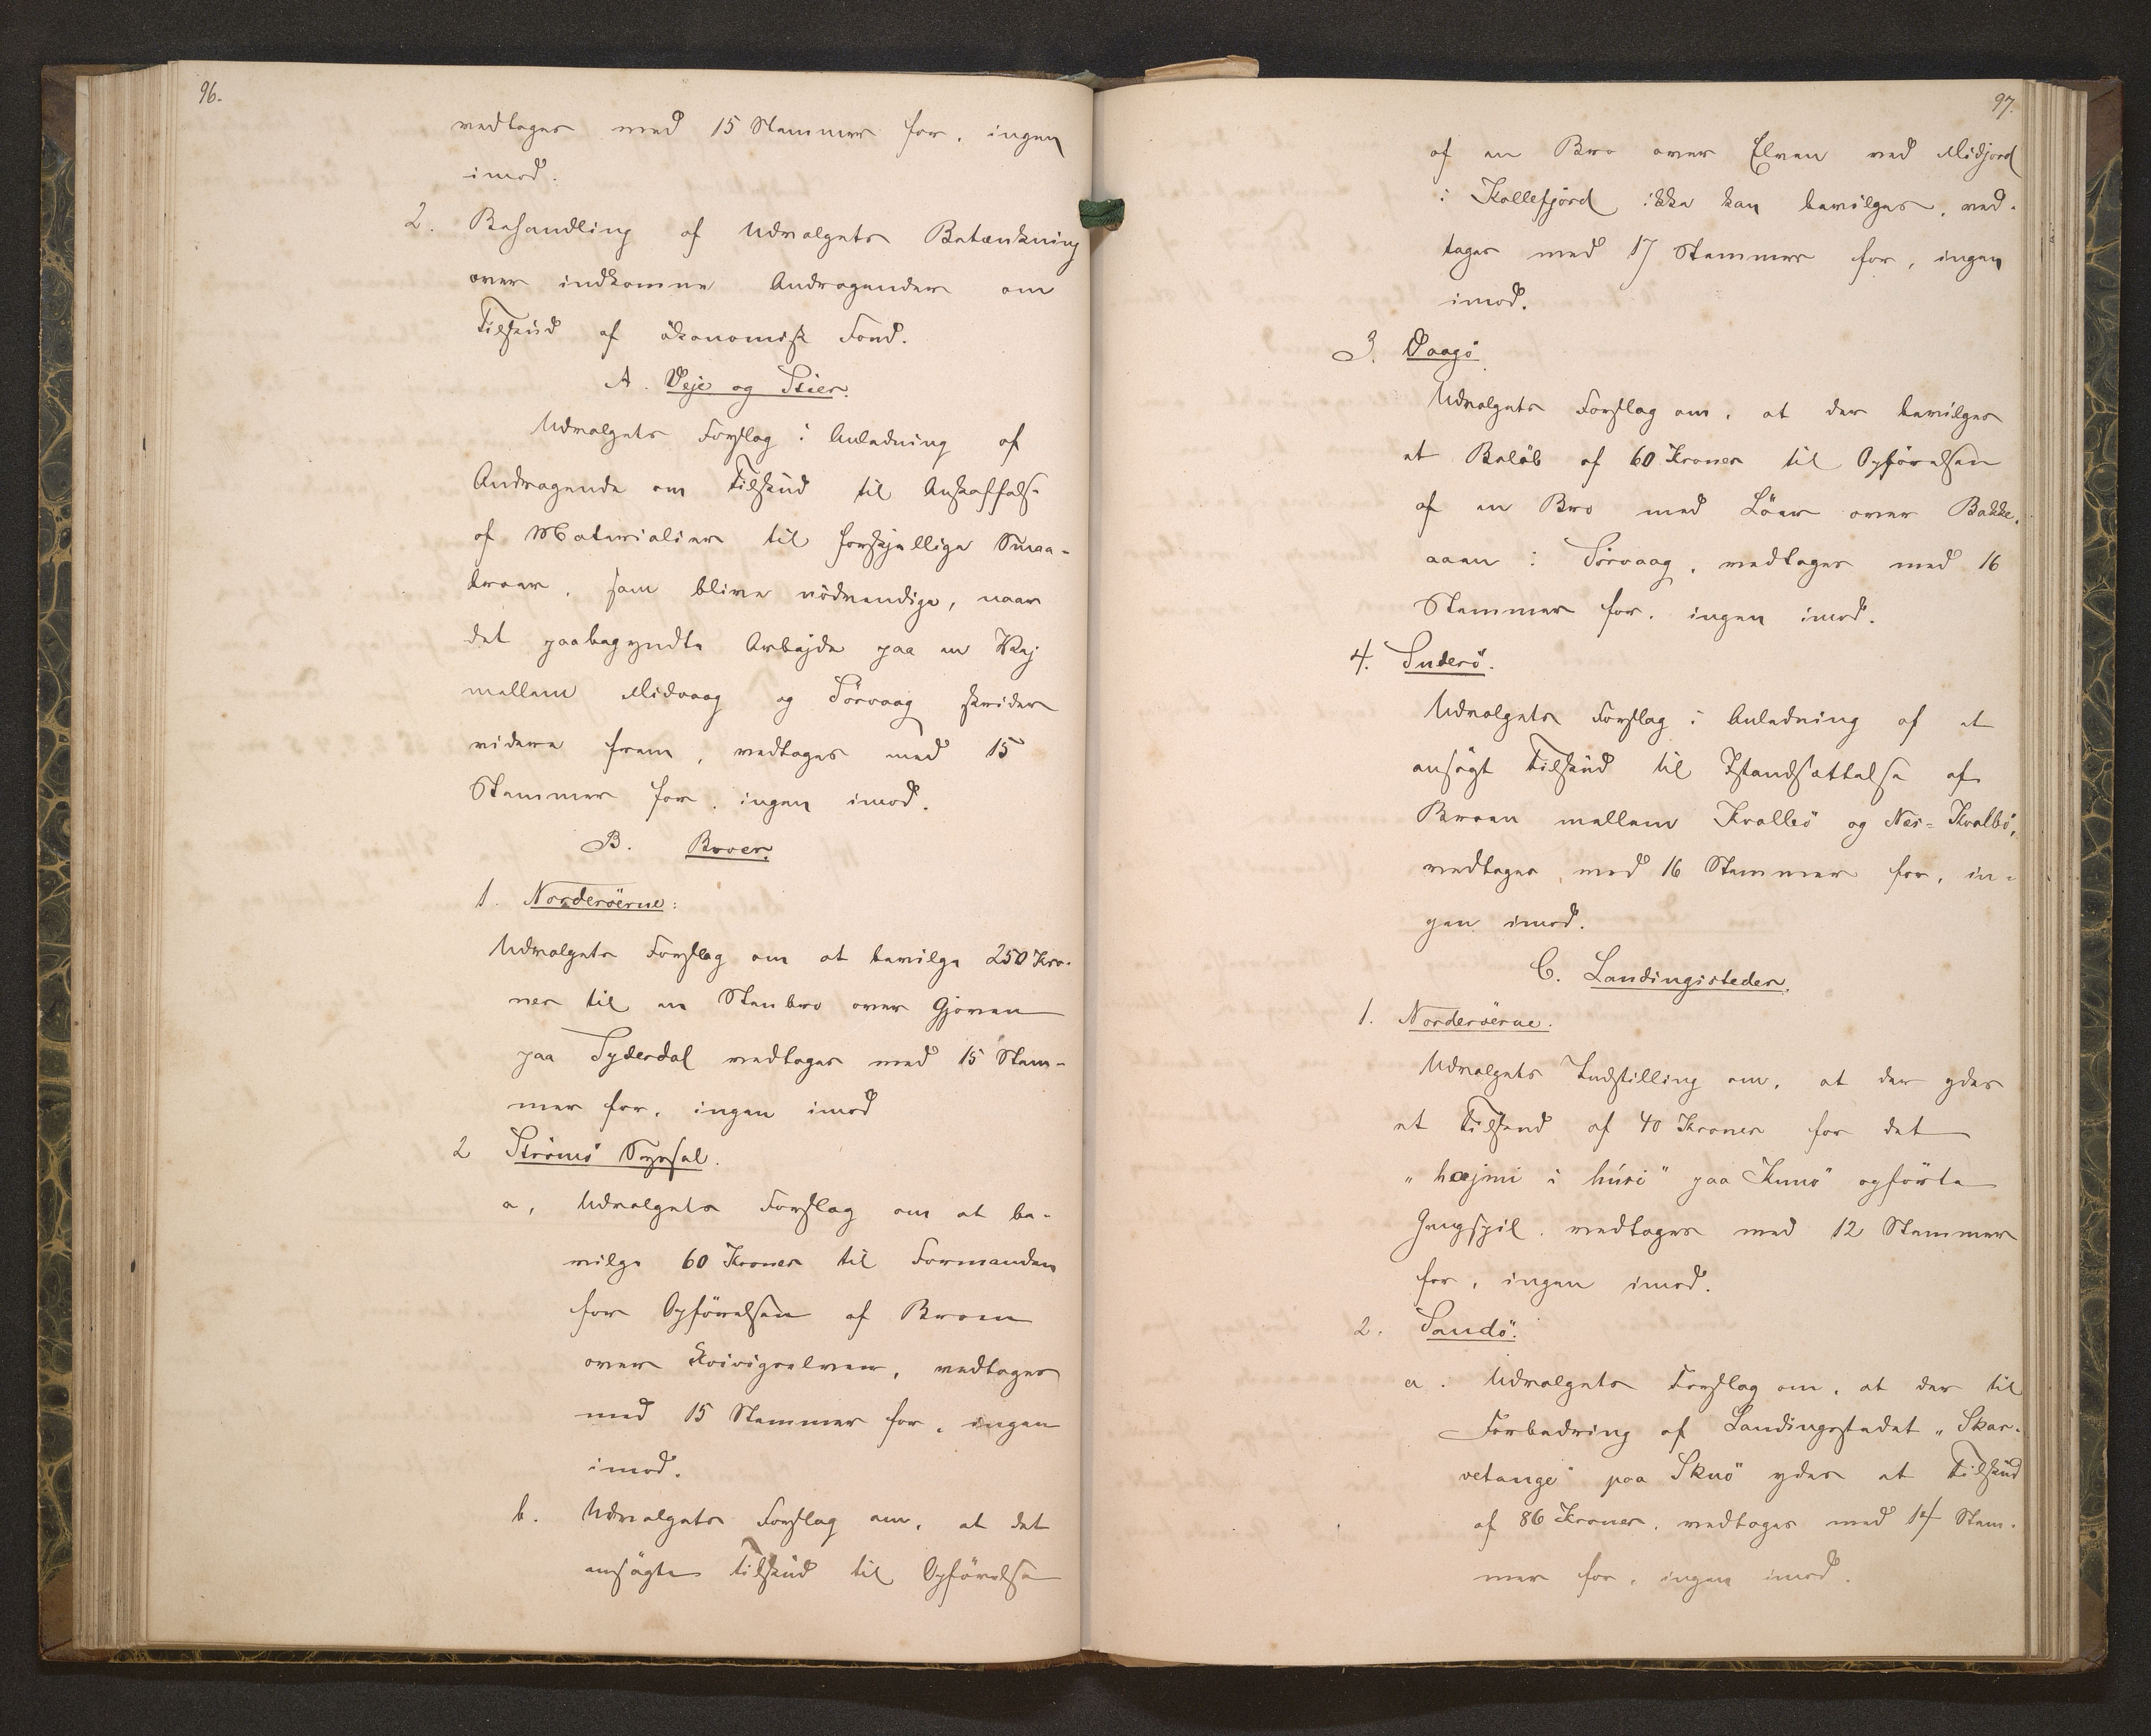 96.
vedtages med 15 Stemmer for, ingen
imod.
2. Behandling af Udvalgets Betænkning
over indkomne Andragender om
Tilskud af økonomisk Fond.
A. Veje og Stier.
Udvalgets Forslag i Anledning af
Andragende om Tilskud til Anskaffels.
af Materialier til forskjellige Smaa-
broer, som blive nödvendige, naar
det paabegyndte Arbejde paa en Vej
mellem Midvaag og Sörvaag skrider
videre frem, vedtages med 15
Stemmer for, ingen imod.
B. Broer.
1. Norderöerne:
Udvalgets Forslag om at bevilge 250 Kro-
ner til en Stenbro over Gjoven
paa Syderdal vedtages med 15 Stem-
mer for, ingen imod
2 Strömö Syssel.
a, Udvalgets Forslag om at be-
vilge 60 Kroner til Formanden
for Opförelsen af Broen
over Kvivigselven, vedtages
med 15 Stemmer for, ingen
imod.
b. Udvalgets Forslag om, at det
ansögte Tilskud til Opförelse
97.
af en Bro over Elven ved Midjord
i Kollefjord ikke kan bevilges, ved-
tages med 17 Stemmer for, ingen
imod.
3. Vaagö
Udvalgets Forslag om, at der bevilges
et Belöb af 60 Kroner til Opförelsen
af en Bro med Löer over Bakke-
aaen i Sörvaag, vedtages med 16
Stemmer for, ingen imod.
4. Suderö.
Udvalgets Forslag i Anledning af et
ansögt Tilskud til Istandsættelse af
Broen mellem Kvalbö og Nes-Kvalbö,
vedtages med 16 Stemmer for, in-
gen imod.
C. Landingssteder.
1. Norderöerne.
Udvalgets Indstilling om, at der ydes
et Tilskud af 40 Kroner for det
"hejmi i húsi" paa Kunö opförte
Gangspil, vedtages med 12 Stemmer
for, ingen imod.
2. Sandö.
a. Udvalgets Forslag om, at der til
Forbedring af Landingsstedet "Skar-
vetange" paa Skuö ydes et Tilskud
af 86 Kroner, vedtages med 14 Stem-
mer for, ingen imod.